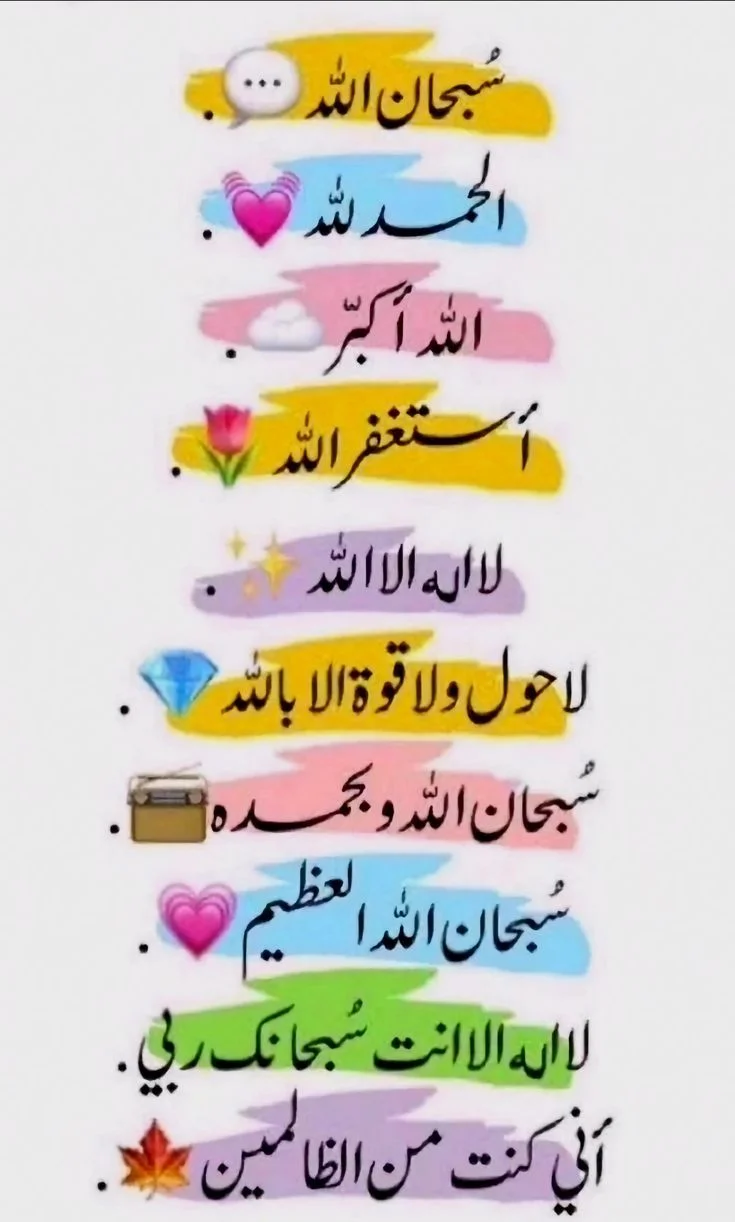 سُبحان الله 💬 .
الحمد لله 💓 .
الله أكبرّ ☁️ .
أستغفر الله 🌷 .
لا اله الا الله ✨ .
لا حول ولا قوة الا بالله 💎 .
سُبحان الله وبحمده 📻 .
سُبحان الله العظيم 💗 .
لا اله الا انت سُبحانك ربي .
أني كنت من الظالمين 🍁 .